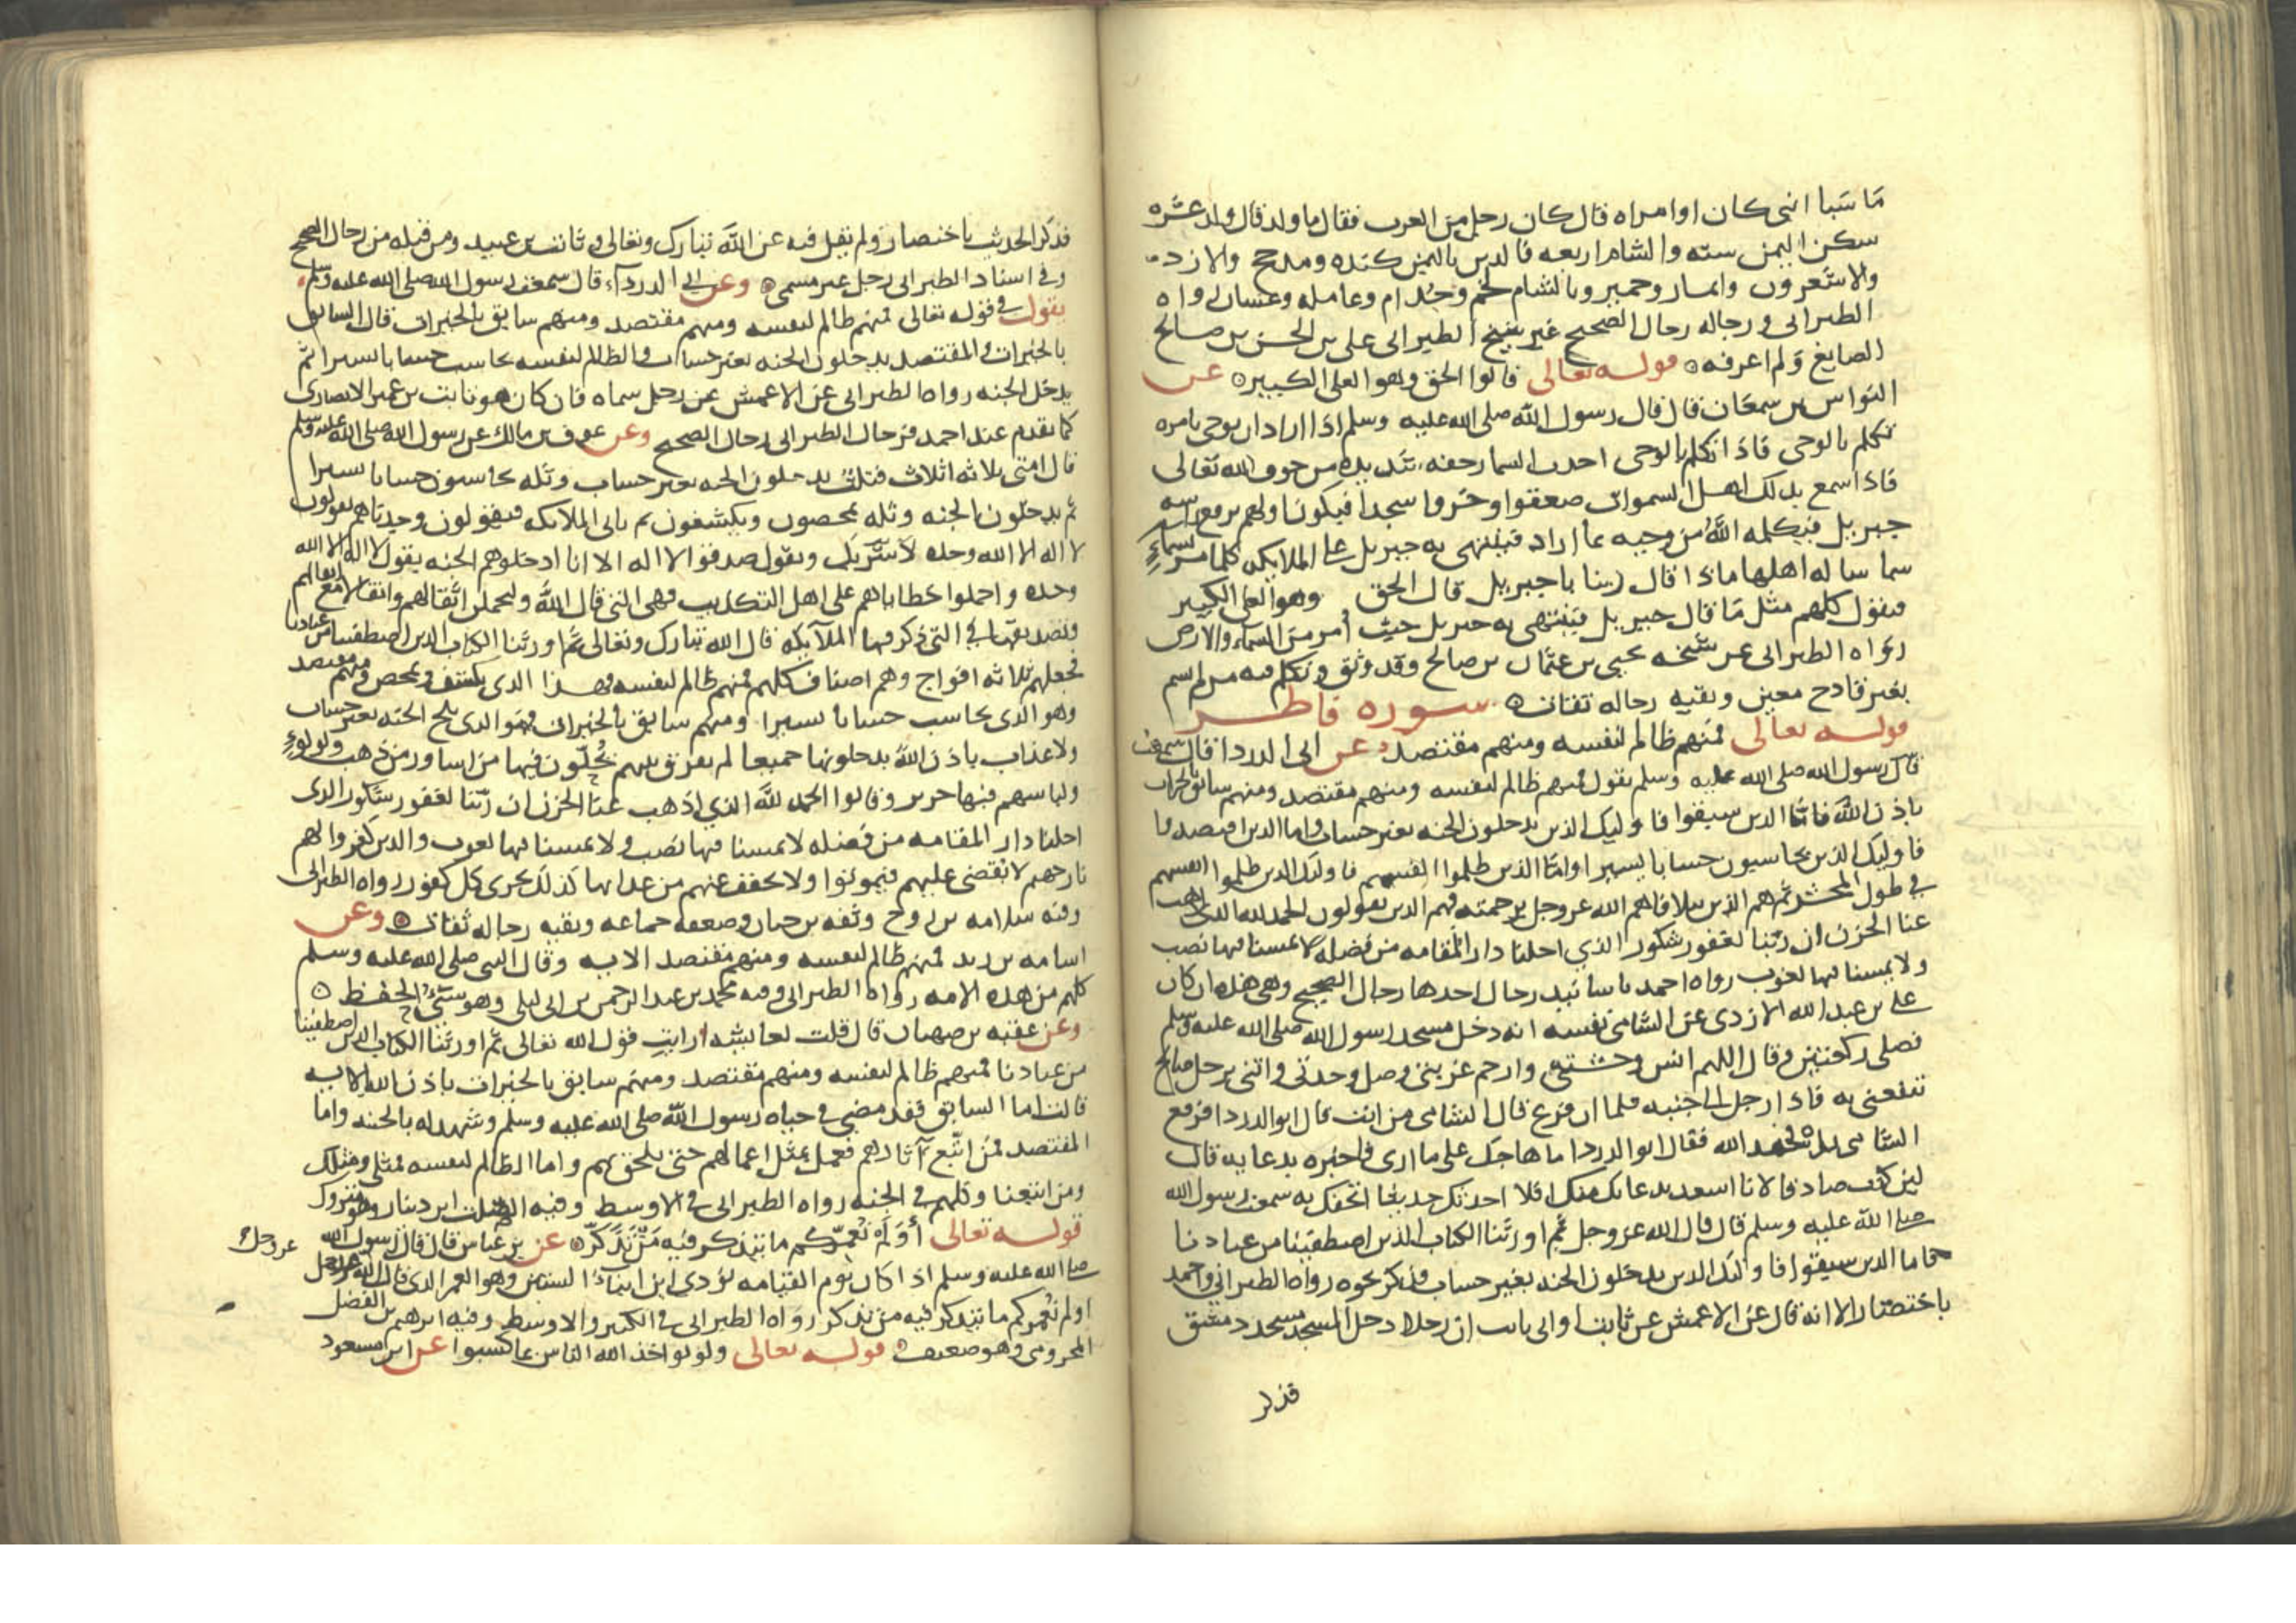 ما سبا انثى كان او امراه قال كان رجل من العرب فقال ما ولد قال ولد عشره
سكن اليمن سته والشام اربعه فالذين باليمن كنده ومدحج والازد
والاشعرون وانمار وحمير وبالشام لخم وجُذام وعامله وغسان رواه
الطبراني ورجاله رجال الصحيح غير شيخ الطبراني علي بن الحسن بن صالح
الصايغ ولم اعرفه قوله تعالى قالوا الحق وهو العلي الكبير عن
النواس بن سمعان قال قال رسول الله صلى الله عليه وسلم اذا اراد ان يوحي بامره
تكلم بالوحي فاذا تكلم بالوحي احدت السما رجفه شديده من خوف الله تعالى
فاذا سمع بذلك اهل السموات صعقوا وخروا سجدا فيكون اولهم يرفع راسه
جبريل فيكلمه الله من وحيه بما اراد فينتهي به جبريل على الملايكه كلما مر بسماءٍ
سما ساله اهلها ماذا قال ربنا يا جبريل قال الحق وهو العلي الكبير
فيقول كلهم مثل ما قال جبريل فينتهي به جبريل حيث أمر من السماء والارض
رواه الطبراني عن شيخه يحيى بن عثمان بن صالح وقد وثق وتكلم فيه من لم يسم
بغير قادح معين وبقيه رجاله ثقات سوره فاطر
قوله تعالى فمنهم ظالم لنفسه ومنهم مقتصد عن ابي الدردا قال سمعت
قال رسول الله صلى الله عليه وسلم يقول فمنهم ظالم لنفسه ومنهم مقتصد ومنهم سابق بالخيرات
باذن الله فاما الذين سبقوا فاوليك الذين يدخلون الجنه بغير حساب واما الذين اقتصدوا
فاوليك الذين يحاسبون حسابا يسيرا واما الذين ظلموا انفسهم فاوليك الذين ظلموا انفسهم
في طول المحشر ثم هم الذين تلافاهم الله عز وجل برحمته فهم الذين يقولون الحمد لله الذي اذهب
عنا الحزن ان ربنا لغفور شكور الذي احلنا دار المقامه من فضله لا يمسنا فيها نصب
ولا يمسنا فيها لغوب رواه احمد باسانيد رجال احدها رجال الصحيح وهي هذه ان كان
علي بن عبد الله الازدي عن الشامي نفسه انه دخل مسجد رسول الله صلى الله عليه وسلم
فصلى ركعتين وقال اللهم انس وحشتي وارحم غربتي وصل وحدتي واتني برجل صالح
تنفعني به فاذا رجل الى جنبه فلما ان فرغ قال الشامي من انت قال ابو الدردا فرفع
الشامي يده فحمد الله فقال ابو الدردا ما هاجك على ما ارى فاخبره بدعايه قال
لين كنت صادقا لانا اسعد بدعايك منك افلا احدثك حديثا اتحفك به سمعت رسول الله
صلى الله عليه وسلم قال قال الله عز وجل ثم اورثنا الكتاب الذين اصطفينا من عبادنا
فاما الذين سبقوا فاوليك الذين يدخلون الجنه بغير حساب فذكر نحوه رواه الطبراني واحمد
باختصار الا انه قال عن الاعمش عن ثابت او ابي ثابت ان رجلا دخل المسجد مسجد دمشق
فذكر
فذكر الحديث باختصار ولم يقل فيه عن الله تبارك وتعالى وثابت بن عبيد ومن قبله من رجال الصحيح
وفي اسناد الطبراني رجل غير مسمى وعن ابي الدرداء قال سمعت رسول الله صلى الله عليه وسلم
يقول في قوله تعالى فمنهم ظالم لنفسه ومنهم مقتصد ومنهم سابق بالخيرات قال السابق
بالخيرات والمقتصد يدخلون الجنه بغير حساب والظالم لنفسه يحاسب حسابا يسيرا ثم
يدخل الجنه رواه الطبراني عن الاعمش عن رجل سماه فان كان هو ثابت بن عمير الانصاري
كما تقدم عند احمد فرجال الطبراني رجال الصحيح وعن عوف بن مالك عن رسول الله صلى الله عليه وسلم
قال امتي ثلاثه اثلاث فثلث يدخلون الجنه بغير حساب وثله يحاسبون حسابا يسيرا
ثم يدخلون الجنه وثله يمحصون ويكشفون ثم ياتي الملايكه فيقولون وجدناهم يقولون
لا اله الا الله وحده لا شريك ويقول صدقوا لا اله الا انا ادخلوهم الجنه بقول لا اله الا الله
وحده واحملوا خطاياهم على اهل التكذيب فهي التي قال الله وليحملن اثقالهم واثقالا مع اثقالهم
وتصديقها في التي ذكر فيها الملايكه قال الله تبارك وتعالى ثم اورثنا الكتاب الذين اصطفينا من عبادنا
فجعلهم ثلاثه افواج وهم اصناف كلهم فمنهم ظالم لنفسه فهذا الذي يكشف ويمحص ومنهم مقتصد
وهو الذي يحاسب حسابا يسيرا ومنهم سابق بالخيرات فهو الذي يلج الجنه بغير حساب
ولا عذاب باذن الله يدخلونها جميعا لم يفرق بينهم يُحلّون فيها من اساور من ذهب ولولوءٍ
ولباسهم فيها حرير وقالوا الحمد لله الذي اذهب عنا الحزن ان ربنا لغفور شكور الذي
احلنا دار المقامه من فضله لا يمسنا فيها نصب ولا يمسنا فيها لغوب والذين كفروا لهم
نار جهنم لا يقضى عليهم فيموتوا ولا يخفف عنهم من عذابها كذلك نجزي كل كفور رواه الطبراني
وفيه سلامه بن روح وثقه بن حبان وضعفه جماعه وبقيه رجاله ثقات وعن
اسامه بن زيد فمنهم ظالم لنفسه ومنهم مقتصد الايه وقال النبي صلى الله عليه وسلم
كلهم من هذه الامه رواه الطبراني وفيه محمد بن عبد الرحمن بن ابي ليلى وهو سيئُ الحفظ
وعن عقبه بن صهبان قال قلت لعايشه ارايتِ قول الله تعالى ثم اورثنا الكتاب الذين اصطفينا
من عبادنا فمنهم ظالم لنفسه ومنهم مقتصد ومنهم سابق بالخيرات باذن الله الايه
قالت اما السابق فقد مضى في حياه رسول الله صلى الله عليه وسلم وشهد له بالجنه واما
المقتصد فمن اتبع آثارهم فعمل بمثل اعمالهم حتى يلحق بهم واما الظالم لنفسه فمثلي ومثلك
ومن اتبعنا وكلهم في الجنه رواه الطبراني في الاوسط وفيه الصلت ابن دينار وهو متروك
قوله تعالى أَوَلَم نُعمّركم ما يتذكر فيه مَن تَذَكّر عن بن عباس قال قال رسول الله
عز وجل
صلى الله عليه وسلم اذا كان يوم القيامه نودي اين ابناءُ الستين وهو العمر الذي قال الله عز وجل
اولم نُعمركم ما يتذكر فيه من تذكر رواه الطبراني في الكبير والاوسط وفيه ابرهيم بن الفضل
المخزومي وهو ضعيف قوله تعالى ولو يواخذ الله الناس بما كسبوا عن ابن مسعود